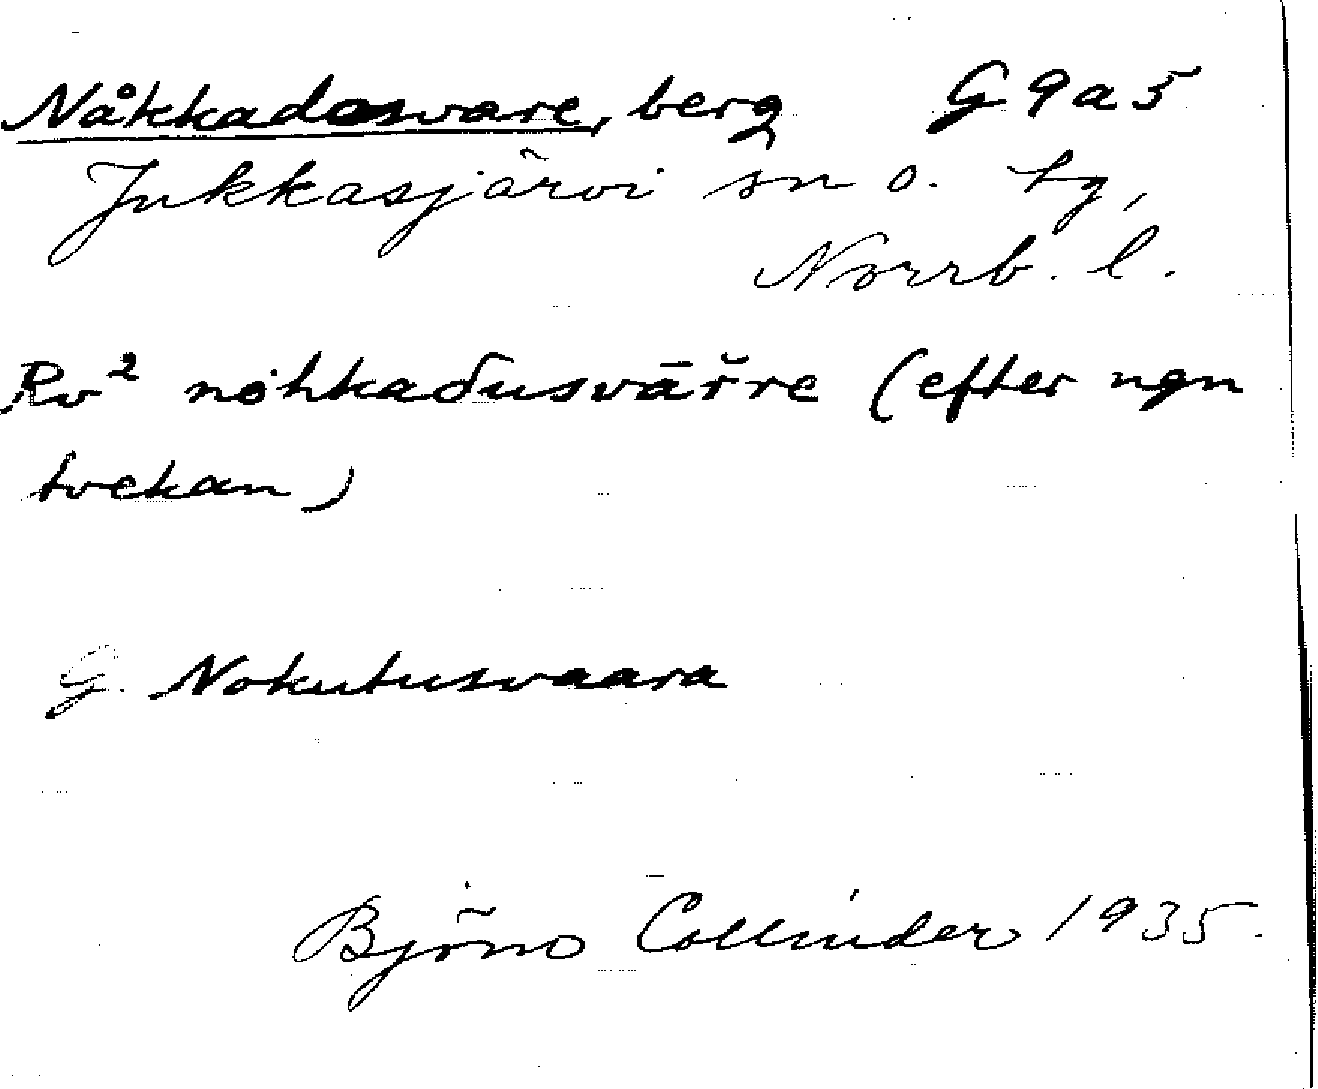 Nåkkadasvare, berg G 9 a 5
Jukkasjärvi sn o. tg,
Norrb. l.
Rv² nöhkaδusvārre (efter ngn
tvekan)
G. Nokutusvaara
Björn Collinder 1935.